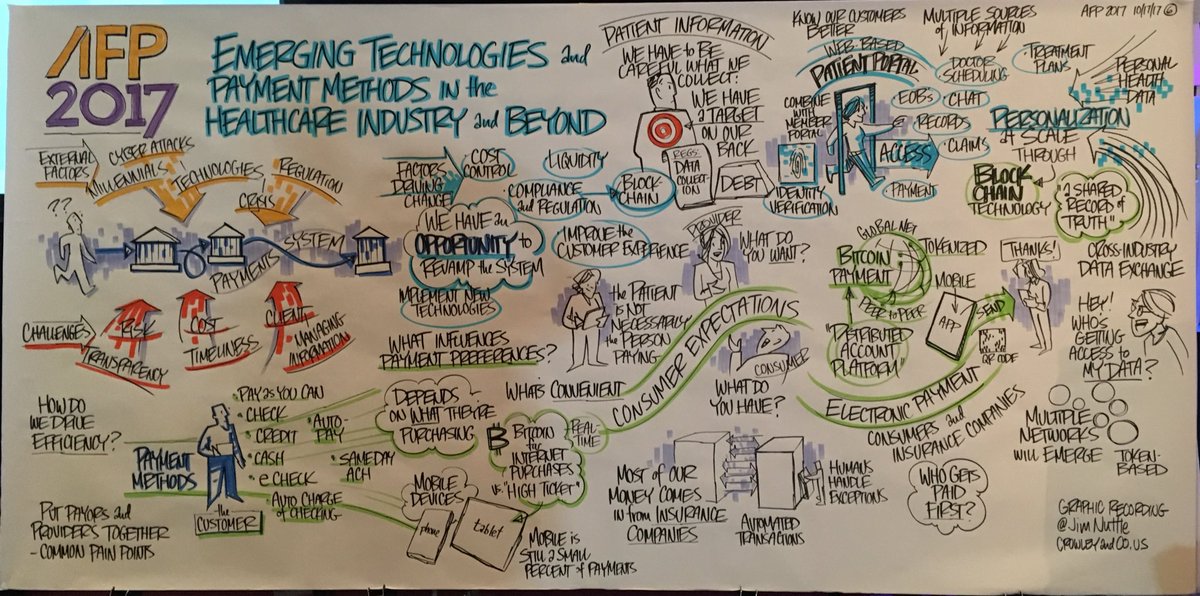 AFP
2017
EMERGING TECHNOLOGIES and
PAYMENT METHODS IN the
HEALTHCARE INDUSTRY and BEYOND
EXTERNAL
FACTORS
CYBER ATTACKS
MILLENNIALS
TECHNOLOGIES
CRISIS
REGULATION
??
SYSTEM
PAYMENTS
CHALLENGES
RISK
TRANSPARENCY
COST
TIMELINESS
CLIENT
MANAGING
INFORMATION
FACTORS
DRIVING
CHANGE
COST
CONTROL
LIQUIDITY
COMPLIANCE
and REGULATION
BLOCK-
CHAIN
WE HAVE an
OPPORTUNITY to
REVAMP the SYSTEM
IMPROVE the
CUSTOMER EXPERIENCE
IMPLEMENT NEW
TECHNOLOGIES
WHAT INFLUENCES
PAYMENT PREFERENCES?
PATIENT INFORMATION
WE HAVE to BE
CAREFUL WHAT WE
COLLECT:
WE HAVE
a TARGET
ON OUR
BACK
REGS:
DATA
COLLECT-
ION
DEBT
KNOW OUR CUSTOMERS
BETTER
WEB-BASED
PATIENT PORTAL
COMBINE
WITH
MEMBER
PORTAL
IDENTITY
VERIFICATION
ACCESS
MULTIPLE SOURCES
of INFORMATION
DOCTOR
SCHEDULING
TREATMENT
PLANS
EOBs
CHAT
RECORDS
CLAIMS
PAYMENT
AFP 2017 10/17/17 6
PERSONAL
HEALTH
DATA
PERSONALIZATION
at SCALE
THROUGH
BLOCK
CHAIN
TECHNOLOGY
"a SHARED
RECORD of
TRUTH"
CROSS-INDUSTRY
DATA EXCHANGE
PROVIDER
WHAT DO
YOU WANT?
the PATIENT
IS NOT
NECESSARILY
the PERSON
PAYING
CONSUMER EXPECTATIONS
CONSUMER
WHAT DO
YOU HAVE?
WHATS CONVENIENT
REAL-
TIME
GLOBAL NET
BITCOIN
PAYMENT
PEER to PEER
"DISTRIBUTED
ACCOUNT
PLATFORM"
TOKENIZED
MOBILE
APP
SEND
QR CODE
THANKS!
HEY!
WHO'S
GETTING
ACCESS to
MY DATA?
ELECTRONIC PAYMENT
CONSUMERS and
INSURANCE COMPANIES
WHO GETS
PAID
FIRST?
MULTIPLE
NETWORKS
WILL EMERGE
TOKEN-
BASED
HOW DO
WE DRIVE
EFFICIENCY?
PAYMENT
METHODS
the
CUSTOMER
PAY as YOU CAN
CHECK
CREDIT
CASH
e CHECK
AUTO-
PAY
SAME DAY
ACH
AUTO CHARGE
of CHECKING
DEPENDS
ON WHAT THEY'RE
PURCHASING
MOBILE
DEVICES
phone
tablet
BITCOIN
the
INTERNET
PURCHASES
vs. "HIGH TICKET"
MOBILE IS
STILL a SMALL
PERCENT of PAYMENTS
MOST of OUR
MONEY COMES
IN from INSURANCE
COMPANIES
AUTOMATED
TRANSACTIONS
HUMANS
HANDLE
EXCEPTIONS
PUT PAYORS and
PROVIDERS TOGETHER
- COMMON PAIN POINTS
GRAPHIC RECORDING
@Jim Nuttle
CROWLEY and CO. US